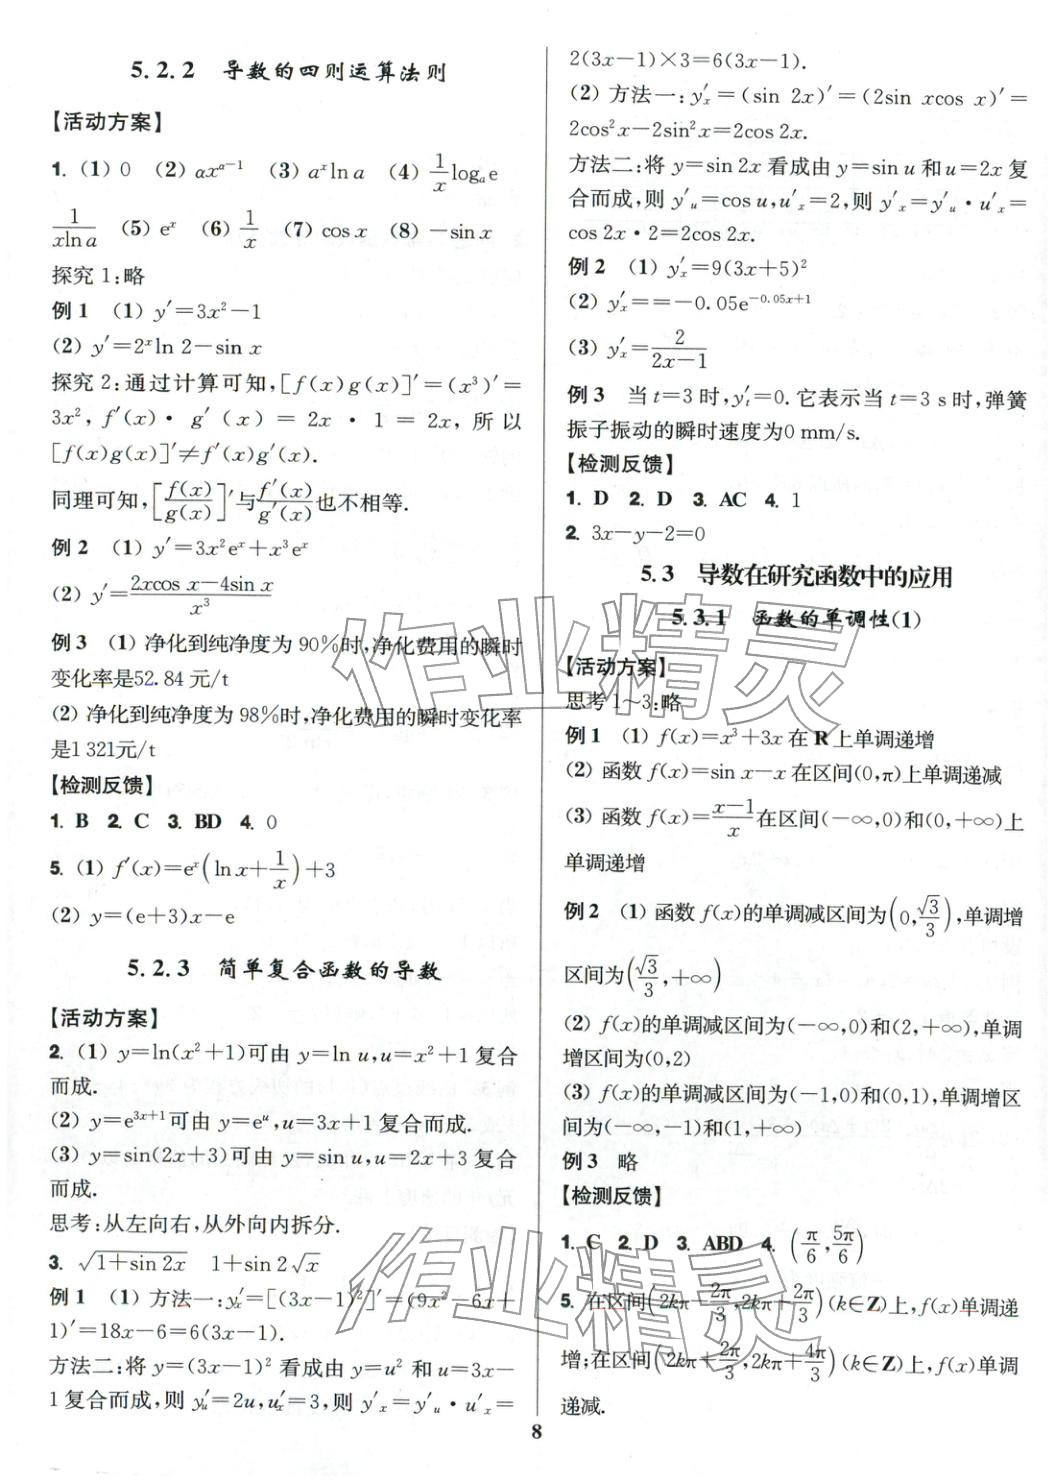 5.2.2 导数的四则运算法则
【活动方案】
1. (1) 0 (2) αx^{α-1} (3) a^x ln a (4) \frac{1}{x}log_a e
\frac{1}{xln a} (5) e^x (6) \frac{1}{x} (7) cos x (8) -sin x
探究 1:略
例 1 (1) y′=3x²-1
(2) y′=2^x ln 2-sin x
探究 2:通过计算可知,[f(x)g(x)]′=(x³)′=
3x², f′(x)· g′(x) = 2x · 1 = 2x, 所以
[f(x)g(x)]′≠f′(x)g′(x).
同理可知,[\frac{f(x)}{g(x)}]′与\frac{f′(x)}{g′(x)}也不相等.
例 2 (1) y′=3x²e^x+x³e^x
(2) y′=\frac{2xcos x-4sin x}{x³}
例 3 (1) 净化到纯净度为 90%时,净化费用的瞬时
变化率是52.84 元/t
(2) 净化到纯净度为 98%时,净化费用的瞬时变化率
是1 321元/t
【检测反馈】
1. B 2. C 3. BD 4. 0
5. (1) f′(x)=e^x(ln x+\frac{1}{x})+3
(2) y=(e+3)x-e
5.2.3 简单复合函数的导数
【活动方案】
2. (1) y=ln(x²+1)可由 y=ln u,u=x²+1 复合
而成.
(2) y=e^{3x+1}可由 y=e^u,u=3x+1 复合而成.
(3) y=sin(2x+3)可由 y=sin u,u=2x+3 复合
而成.
思考:从左向右,从外向内拆分.
3. \sqrt{1+sin 2x} 1+sin 2\sqrt{x}
例 1 (1) 方法一:y′_x=[(3x-1)²]′=(9x²-6x+
1)′=18x-6=6(3x-1).
方法二:将 y=(3x-1)² 看成由 y=u² 和 u=3x-
1 复合而成,则 y′_u=2u,u′_x=3,则 y′_x=y′_u·u′_x=
2(3x-1)×3=6(3x-1).
(2) 方法一:y′_x=(sin 2x)′=(2sin xcos x)′=
2cos²x-2sin²x=2cos 2x.
方法二:将 y=sin 2x 看成由 y=sin u 和 u=2x 复
合而成,则 y′_u=cos u,u′_x=2,则 y′_x=y′_u·u′_x=
cos 2x·2=2cos 2x.
例 2 (1) y′_x=9(3x+5)²
(2) y′_x==-0.05e^{-0.05x+1}
(3) y′_x=\frac{2}{2x-1}
例 3 当 t=3 时,y′_t=0. 它表示当 t=3 s 时,弹簧
振子振动的瞬时速度为0 mm/s.
【检测反馈】
1. D 2. D 3. AC 4. 1
2. 3x-y-2=0
5.3 导数在研究函数中的应用
5.3.1 函数的单调性(1)
【活动方案】
思考 1~3:略
例 1 (1) f(x)=x³+3x 在 R 上单调递增
(2) 函数 f(x)=sin x-x 在区间(0,π)上单调递减
(3) 函数 f(x)=\frac{x-1}{x}在区间(-∞,0)和(0,+∞)上
单调递增
例 2 (1) 函数 f(x)的单调减区间为(0,\frac{\sqrt{3}}{3}),单调增
区间为(\frac{\sqrt{3}}{3},+∞)
(2) f(x)的单调减区间为(-∞,0)和(2,+∞),单调
增区间为(0,2)
(3) f(x)的单调减区间为(-1,0)和(0,1),单调增区
间为(-∞,-1)和(1,+∞)
例 3 略
【检测反馈】
1. C 2. D 3. ABD 4. (\frac{π}{6},\frac{5π}{6})
5. 在区间(2kπ-\frac{2π}{3},2kπ+\frac{2π}{3})(k∈Z)上,f(x)单调递
增;在区间(2kπ+\frac{2π}{3},2kπ+\frac{4π}{3})(k∈Z)上,f(x)单调
递减.
8
作业精灵
作业精灵